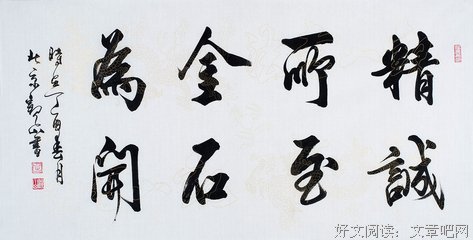 精誠
所至
金石
為開
時在丁酉春月
北京山書
好文阅读：文章吧网